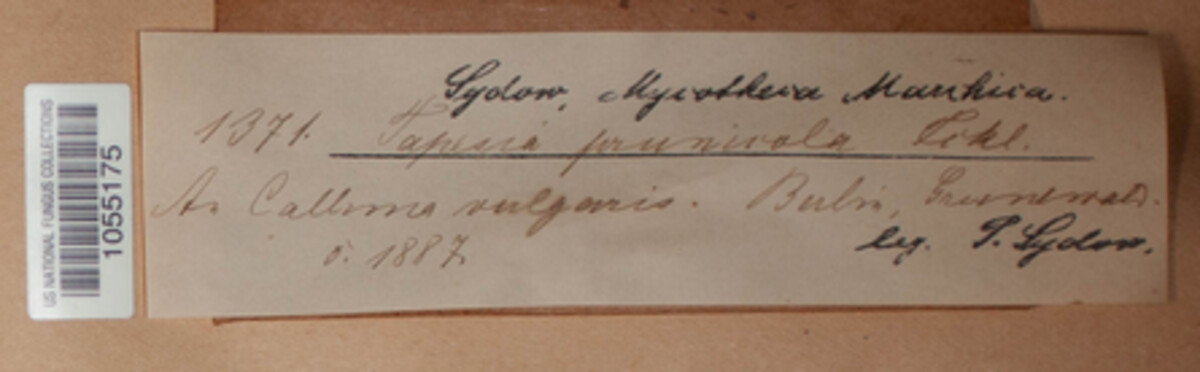 Sydow, Mycotheca Marchica.
1371. Tapesia prunicola Fckl.
An Calluna vulgaris. Berlin, Grunewald.
5. 1887.
leg. P. Sydow.
US NATIONAL FUNGUS COLLECTIONS
1055175